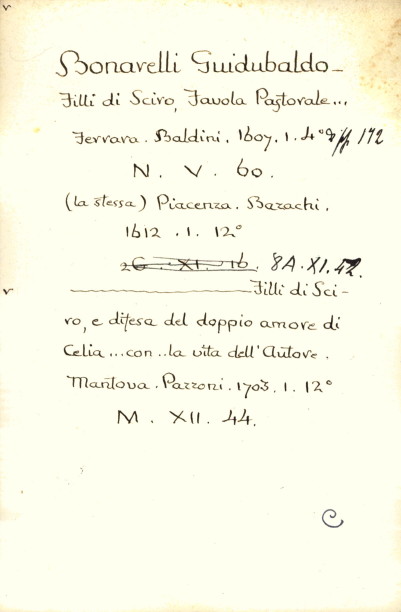 Bonarelli Guidubaldo_
Filli di Sciro, Favola Pastorale...
Ferrara. Baldini. 1607. 1. 4° di pp 172
N. V. 60.
(la stessa) Piacenza. Bazachi.
1612 . 1. 12°
2G. XI. 16. 8A. XI. 42.
Filli di Sci-
ro, e difesa del doppio amore di
Celia ... con .. la vita dell'Autore.
Mantova. Pazzoni. 1703. 1. 12°
M. XII. 44.
C